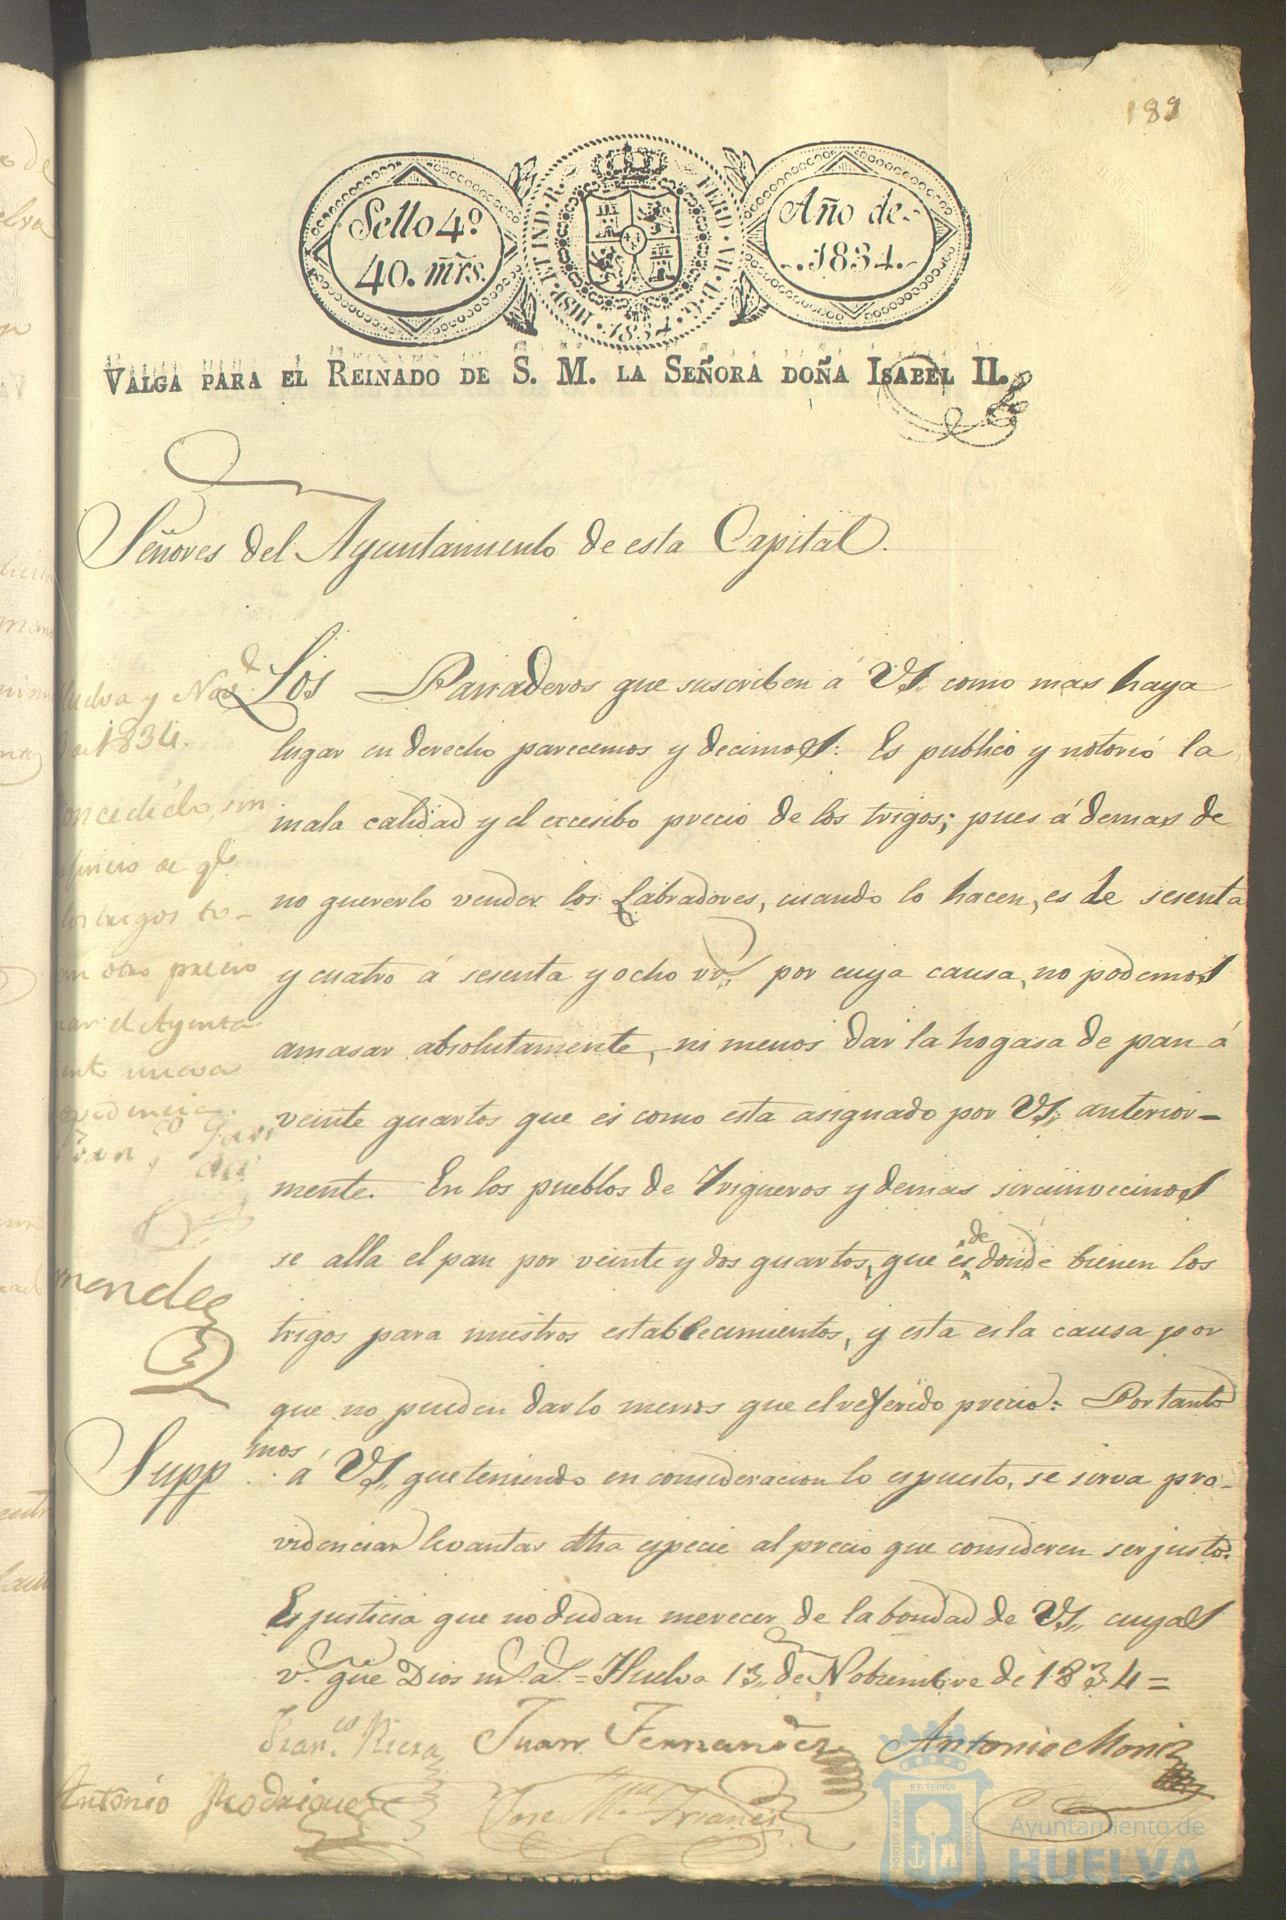 189
Sello 4º
40. mrs.
HISP. ET IND. R.
FERD. VII. D. G.
1834.
Año de
1834.
VALGA PARA EL REINADO DE S. M. LA SEÑORA DOÑA ISABEL II.
Señores del Ayuntamiento de esta Capital.
Los Panaderos que suscriben á VS. como mas haya
lugar en derecho parecemos y decimos: Es publico y notorio la
mala calidad y el excesibo precio de los trigos; pues á demas de
no quererlo vender los Labradores, cuando lo hacen, es de sesenta
y cuatro á sesenta y ocho rs. por cuya causa, no podemos
amasar absolutamente, ni menos dar la hogasa de pan á
veinte quartos que es como esta asignado por VS. anterior-
mente. En los pueblos de Trigueros y demas sircunvecinos
se alla el pan por veinte y dos quartos, que es de donde bienen los
trigos para nuestros establecimientos, y esta es la causa por
que no pueden darlo menos que el referido precio: Por tanto
Suppmos. á VS. que teniendo en consideracion lo espuesto, se sirva pro-
videnciar levantar dha especie al precio que consideren ser justo.
Es justicia que no dudan merecer de la bondad de VS. cuyas
vs. gue Dios ms. as. = Huelva 13 de Nobiembre de 1834 =
Franco. Riera
Juan Fernandez
Antonio Moniz
Antonio Rodriguez
Jose Mª
Huelva y Nov
de 1834.
Concedido, sin
perjuicio de qe.
los trigos to-
man otro precio
el Ayunta-
nueva
providencia.
Mendez
ET TERRA
PORTUS MARIS
CUSTODIA
Ayuntamiento de
HUELVA